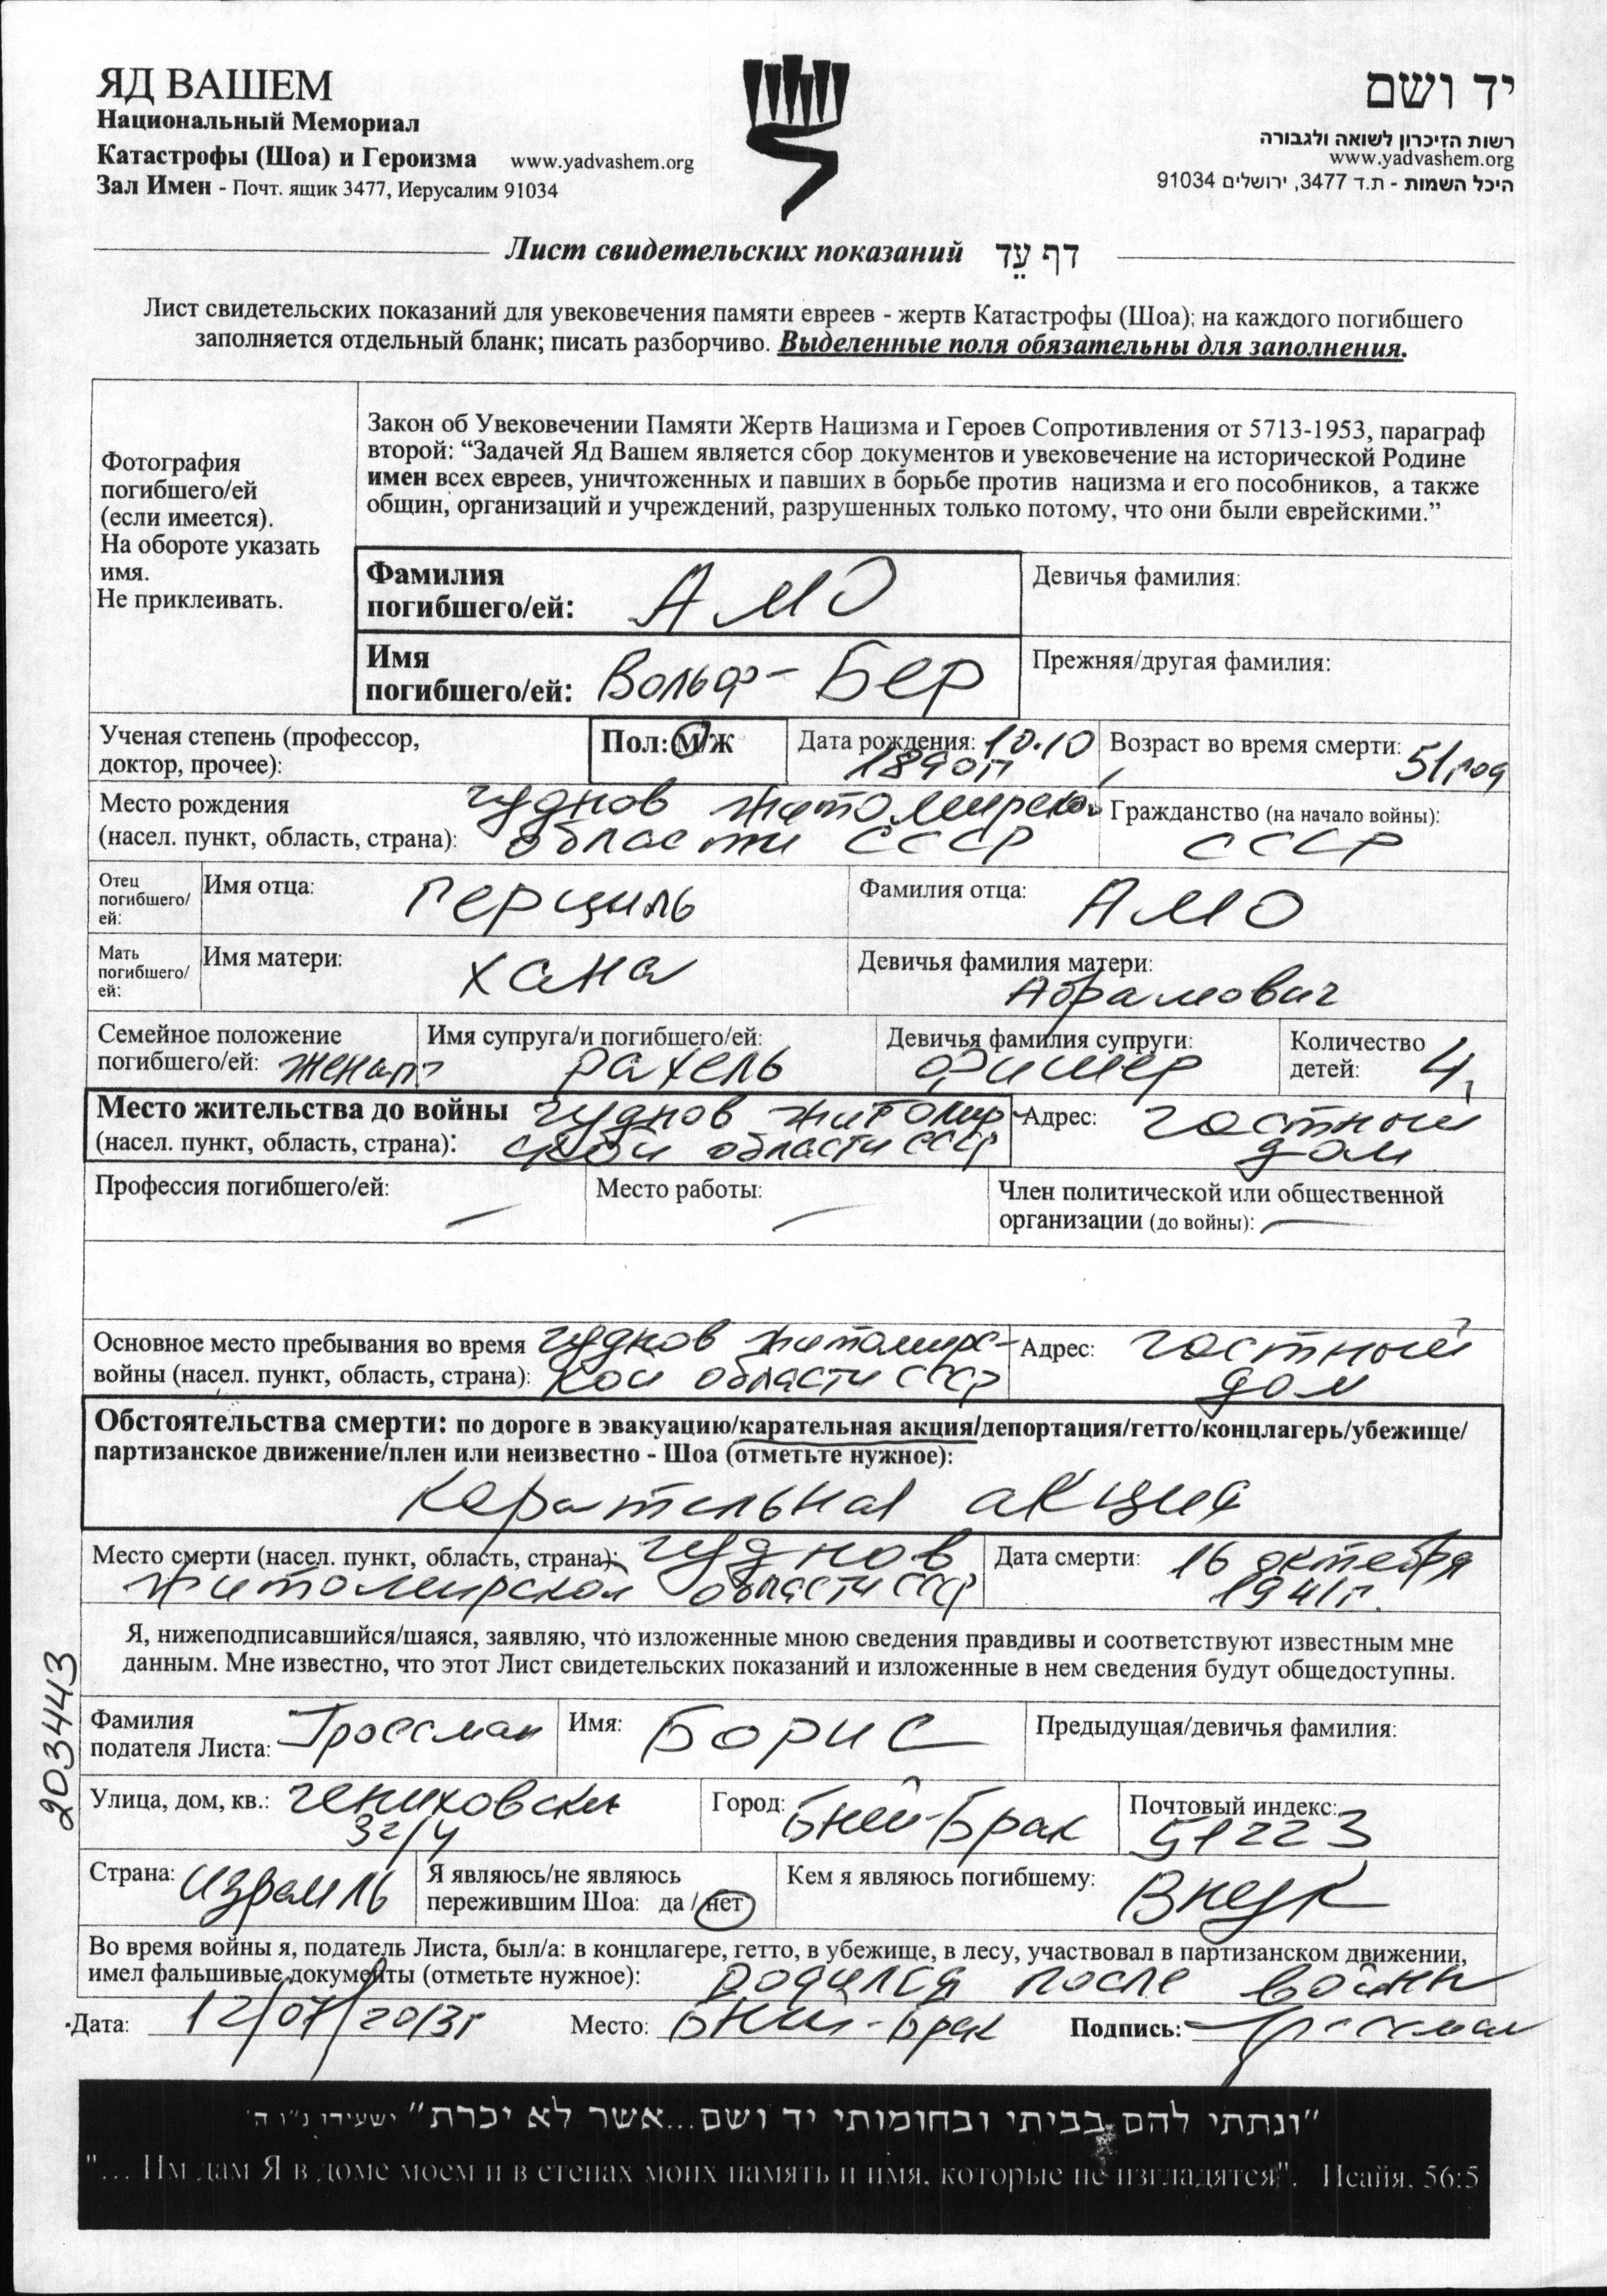 ЯД ВАШЕМ
Национальный Мемориал
Катастрофы (Шоа) и Героизма www.yadvashem.org
Зал Имен - Почт. ящик 3477, Иерусалим 91034
יד ושם
רשות הזיכרון לשואה ולגבורה
www.yadvashem.org
היכל השמות - ת.ד 3477, ירושלים 91034
Лист свидетельских показаний דף עֵד
Лист свидетельских показаний для увековечения памяти евреев - жертв Катастрофы (Шоа); на каждого погибшего
заполняется отдельный бланк; писать разборчиво. Выделенные поля обязательны для заполнения.
Фотография
погибшего/ей
(если имеется).
На обороте указать
имя.
Не приклеивать.
Закон об Увековечении Памяти Жертв Нацизма и Героев Сопротивления от 5713-1953, параграф
второй: “Задачей Яд Вашем является сбор документов и увековечение на исторической Родине
имен всех евреев, уничтоженных и павших в борьбе против нацизма и его пособников, а также
общин, организаций и учреждений, разрушенных только потому, что они были еврейскими.”
Фамилия
погибшего/ей: АМО
Девичья фамилия:
Имя
погибшего/ей: Вольф-Бер
Прежняя/другая фамилия:
Ученая степень (профессор,
доктор, прочее):
Пол: М/Ж
Дата рождения: 10.10
1890г
Возраст во время смерти: 51 год
Место рождения Чуднов Житомирской
(насел. пункт, область, страна): области СССР
Гражданство (на начало войны):
СССР
Отец
погибшего/
ей:
Имя отца: Герциль
Фамилия отца: АМО
Мать
погибшего/
ей:
Имя матери: Хана
Девичья фамилия матери:
Абрамович
Семейное положение
погибшего/ей: женат
Имя супруга/и погибшего/ей:
Рахель
Девичья фамилия супруги:
Фишер
Количество
детей: 4
Место жительства до войны Чуднов Житомир-
(насел. пункт, область, страна): ской области СССР
Адрес: частный
дом
Профессия погибшего/ей: —
Место работы: —
Член политической или общественной
организации (до войны): —
Основное место пребывания во время Чуднов Житомирс-
войны (насел. пункт, область, страна): кой области СССР
Адрес: частный
дом
Обстоятельства смерти: по дороге в эвакуацию/карательная акция/депортация/гетто/концлагерь/убежище/
партизанское движение/плен или неизвестно - Шоа (отметьте нужное):
Карательная акция
Место смерти (насел. пункт, область, страна): Чуднов
Житомирской области СССР
Дата смерти: 16 октября
1941г.
Я, нижеподписавшийся/шаяся, заявляю, что изложенные мною сведения правдивы и соответствуют известным мне
данным. Мне известно, что этот Лист свидетельских показаний и изложенные в нем сведения будут общедоступны.
203443
Фамилия
подателя Листа: Гроссман
Имя: Борис
Предыдущая/девичья фамилия:
Улица, дом, кв.:
Город: Бней-Брак
Почтовый индекс:
51223
Страна: Израиль
Я являюсь/не являюсь
пережившим Шоа: да / нет
Кем я являюсь погибшему:
Внук
Во время войны я, податель Листа, был/а: в концлагере, гетто, в убежище, в лесу, участвовал в партизанском движении,
имел фальшивые документы (отметьте нужное): родился после войны
Дата: 12/07/2013г Место: Бней-Брак Подпись: Гроссман
"ונתתי להם בביתי ובחומותי יד ושם...אשר לא יכרת" ישעיהו נ"ו ה'
"... Им дам Я в доме моем и в стенах моих память и имя, которые не изгладятся". Исайя, 56:5